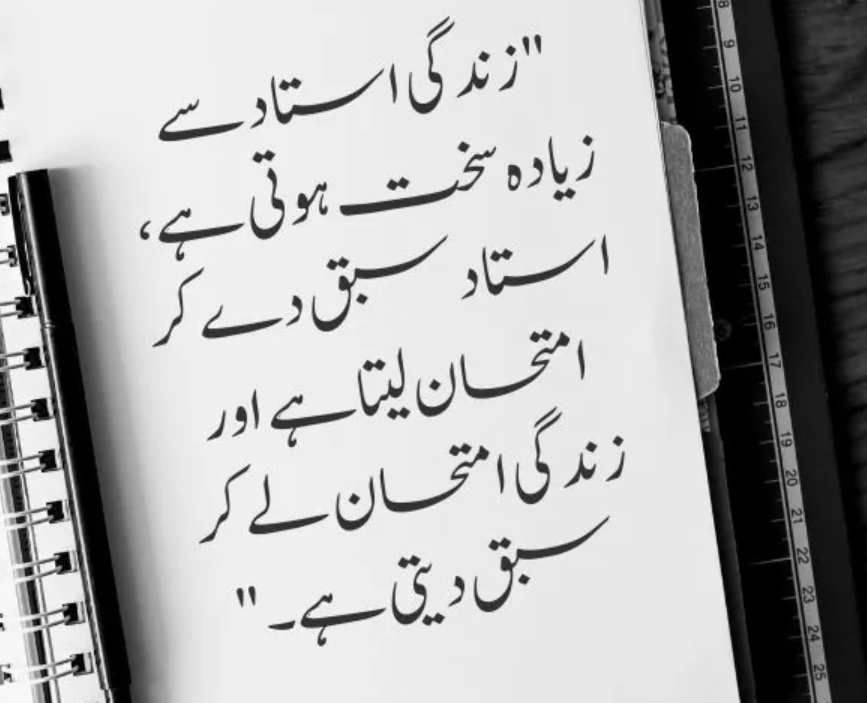 "زندگی استاد سے
زیادہ سخت ہوتی ہے،
استاد سبق دے کر
امتحان لیتا ہے اور
زندگی امتحان لے کر
سبق دیتی ہے۔"
8
9
10
11
12
13
14
15
16
17
18
19
20
21
22
23
24
25